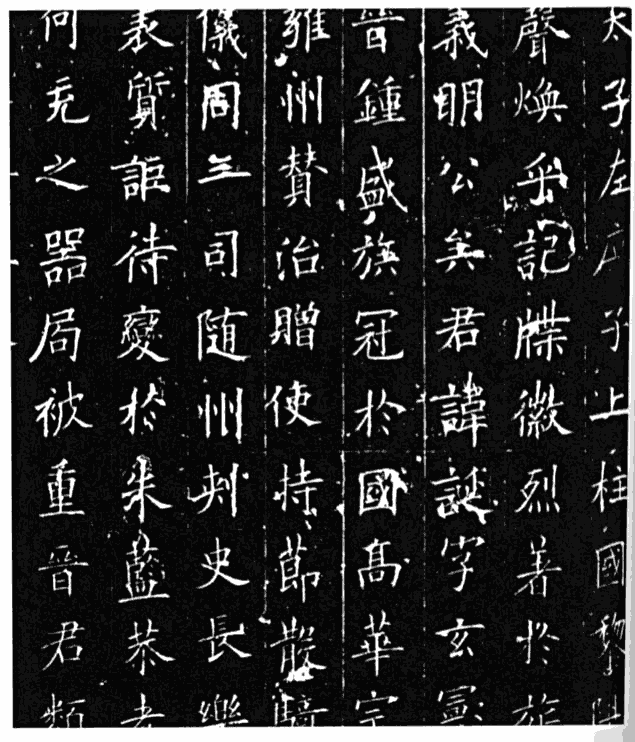 太子左庶子上柱國黎
聲煥乎記牒徽烈著於旂
義明公矣君諱誕字玄憲
晉鍾盛族冠於國高華宗
雍州贊治贈使持節散騎
儀同三司隨州刺史長樂
表質詎待變於朱藍恭孝
何充之器局被重晉君類